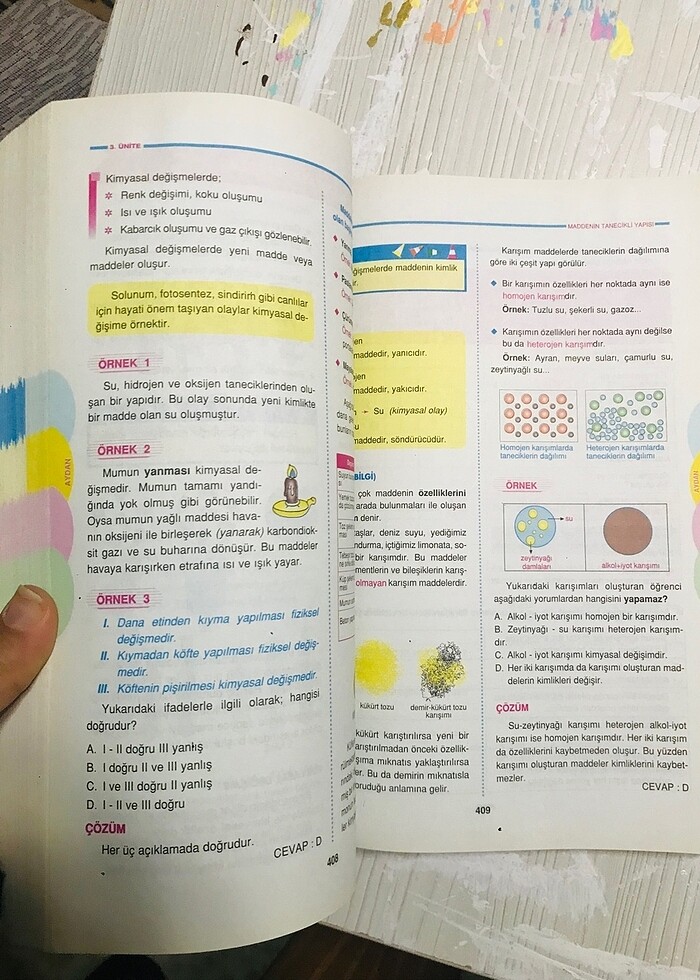 3. ÜNİTE
Kimyasal değişmelerde;
✲ Renk değişimi, koku oluşumu
✲ Isı ve ışık oluşumu
✲ Kabarcık oluşumu ve gaz çıkışı gözlenebilir.
Kimyasal değişmelerde yeni madde veya
maddeler oluşur.
Solunum, fotosentez, sindirim gibi canlılar
için hayati önem taşıyan olaylar kimyasal de-
ğişime örnektir.
ÖRNEK 1
Su, hidrojen ve oksijen taneciklerinden olu-
şan bir yapıdır. Bu olay sonunda yeni kimlikte
bir madde olan su oluşmuştur.
ÖRNEK 2
Mumun yanması kimyasal de-
ğişmedir. Mumun tamamı yandı-
ğında yok olmuş gibi görünebilir.
Oysa mumun yağlı maddesi hava-
nın oksijeni ile birleşerek (yanarak) karbondiok-
sit gazı ve su buharına dönüşür. Bu maddeler
havaya karışırken etrafına ısı ve ışık yayar.
ÖRNEK 3
I. Dana etinden kıyma yapılması fiziksel
değişmedir.
II. Kıymadan köfte yapılması fiziksel değiş-
medir.
III. Köftenin pişirilmesi kimyasal değişmedir.
Yukarıdaki ifadelerle ilgili olarak; hangisi
doğrudur?
A. I - II doğru III yanlış
B. I doğru II ve III yanlış
C. I ve III doğru II yanlış
D. I - II ve III doğru
ÇÖZÜM
Her üç açıklamada doğrudur.
CEVAP : D
408
AYDAN
MADDENİN TANECİKLİ YAPISI
ğişmelerde maddenin kimlik
ir.
maddedir, yanıcıdır.
maddedir, yakıcıdır.
Su (kimyasal olay)
maddedir, söndürücüdür.
BİLGİ)
çok maddenin özelliklerini
arada bulunmaları ile oluşan
denir.
taşlar, deniz suyu, yediğimiz
ndurma, içtiğimiz limonata, so-
bir karışımdır. Bu maddeler
mentlerin ve bileşiklerin karış-
olmayan karışım maddelerdir.
kükürt tozu
demir-kükürt tozu
karışımı
kükürt karıştırılırsa yeni bir
arıştırılmadan önceki özellik-
şıma mıknatıs yaklaştırılırsa
er. Bu da demirin mıknatısla
oruduğu anlamına gelir.
409
Karışım maddelerde taneciklerin dağılımına
göre iki çeşit yapı görülür.
◆ Bir karışımın özellikleri her noktada aynı ise
homojen karışımdır.
Örnek: Tuzlu su, şekerli su, gazoz...
◆ Karışımın özellikleri her noktada aynı değilse
bu da heterojen karışımdır.
Örnek: Ayran, meyve suları, çamurlu su,
zeytinyağlı su...
Homojen karışımlarda
taneciklerin dağılımı
Heterojen karışımlarda
taneciklerin dağılımı
ÖRNEK
su
zeytinyağı
damlaları
alkol+iyot karışımı
Yukarıdaki karışımları oluşturan öğrenci
aşağıdaki yorumlardan hangisini yapamaz?
A. Alkol - iyot karışımı homojen bir karışımdır.
B. Zeytinyağı - su karışımı heterojen karışım-
dır.
C. Alkol - iyot karışımı kimyasal değişimdir.
D. Her iki karışımda da karışımı oluşturan mad-
delerin kimlikleri değişir.
ÇÖZÜM
Su-zeytinyağı karışımı heterojen alkol-iyot
karışımı ise homojen karışımdır. Her iki karışım
da özelliklerini kaybetmeden oluşur. Bu yüzden
karışımı oluşturan maddeler kimliklerini kaybet-
mezler.
CEVAP : D
AYDAN